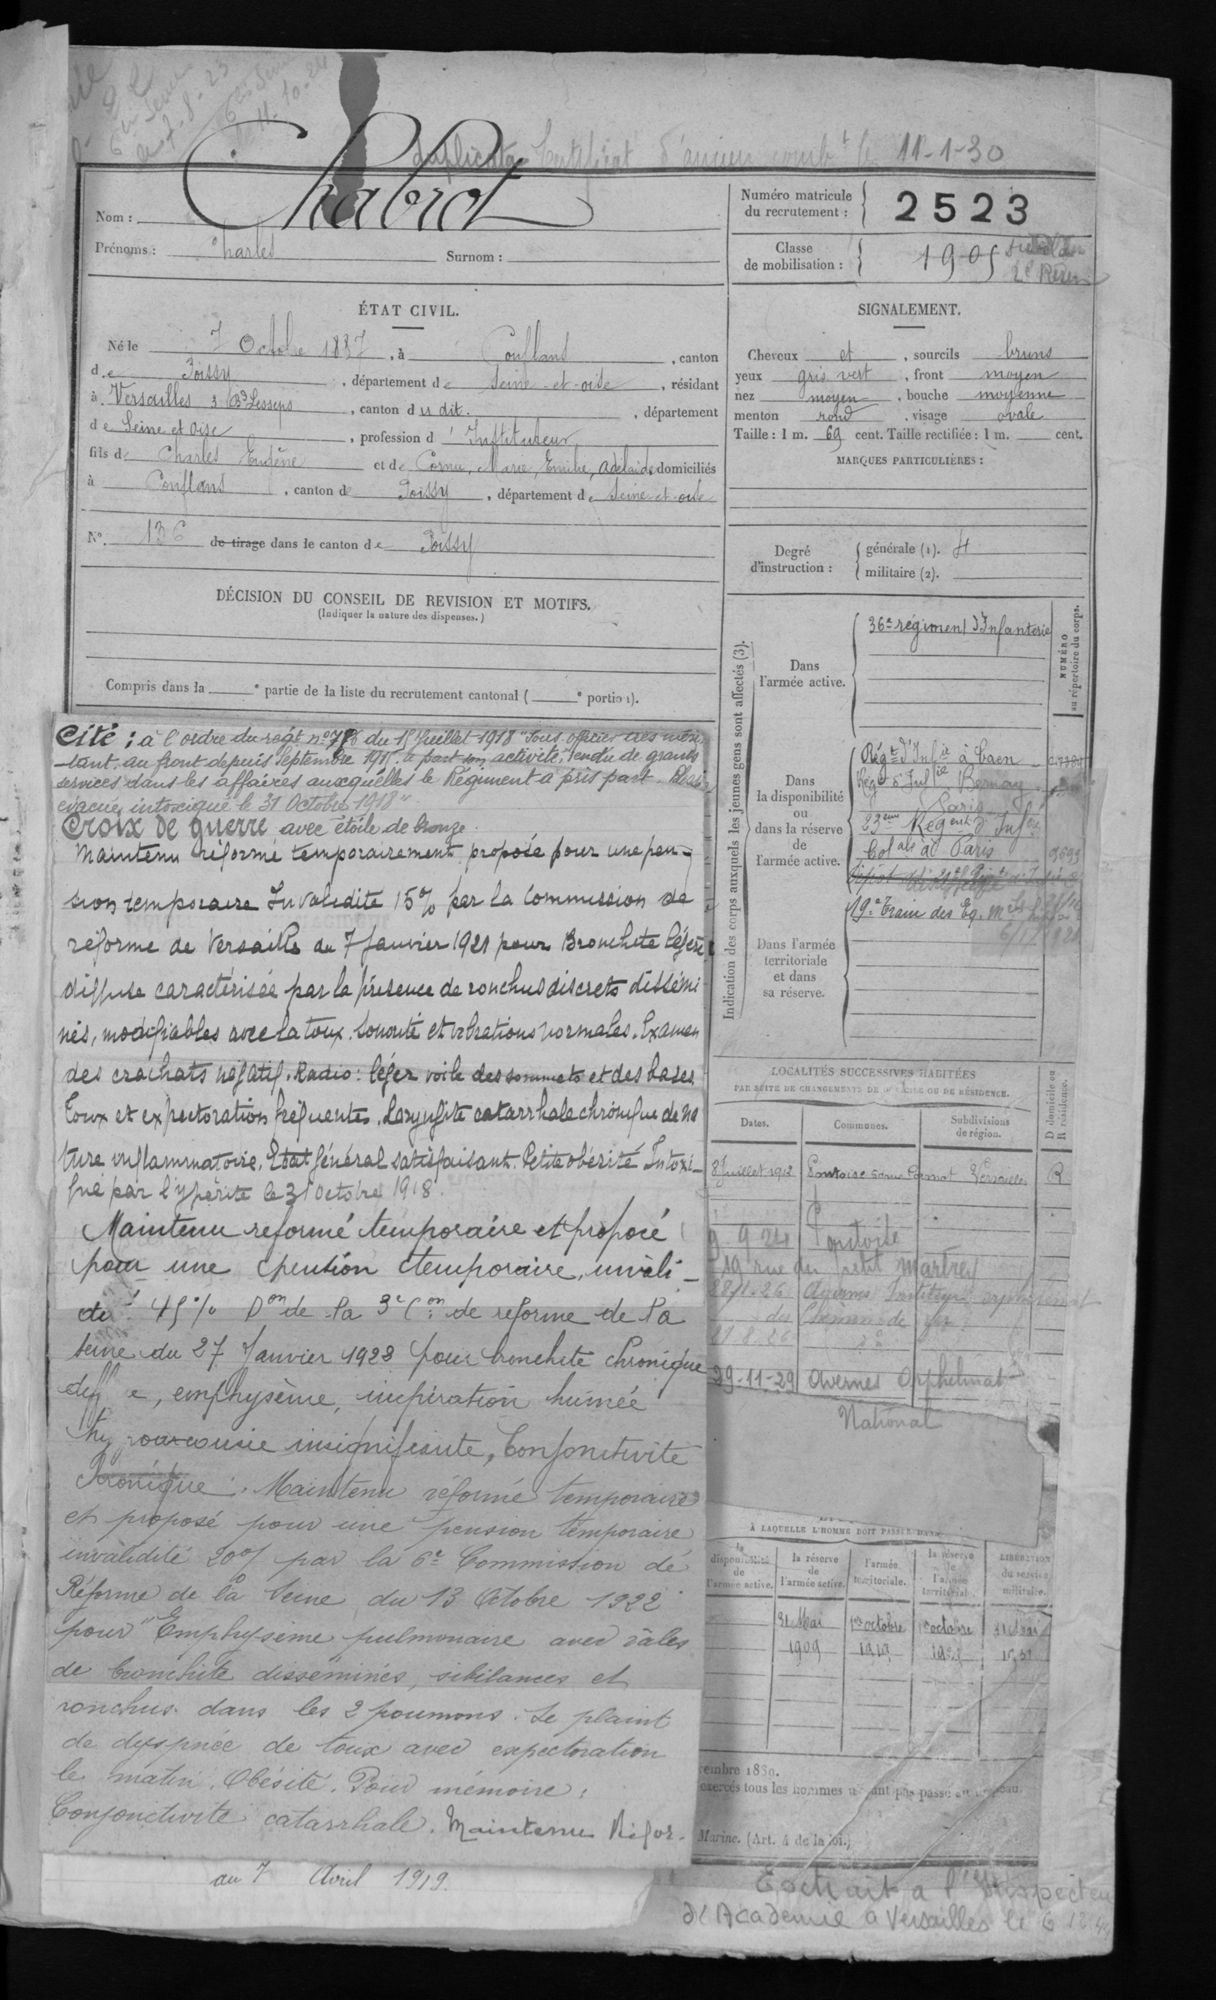 Duplicata Certificat d'ancien combt le 11-1-30
Nom : Chabrot
Prénoms : Charles Surnom :
Numéro matricule
du recrutement : 2523
Classe
de mobilisation : 1905
ÉTAT CIVIL.
Né le 7 Octobre 1887, à Conflans, canton
de Poissy, département de Seine-et-oise, résidant
à Versailles 3 Bd Lesseps, canton du dit, département
de Seine et Oise, profession d'Instituteur
fils de Charles Eugène et de Cornu, Marie, Emilie, Adélaïde domiciliés
à Conflans, canton de Poissy, département de Seine-et-oise
N° 136 de tirage dans le canton de Poissy
SIGNALEMENT.
Cheveux et, sourcils bruns
yeux gris vert, front moyen
nez moyen, bouche moyenne
menton rond, visage ovale
Taille : 1 m. 69 cent. Taille rectifiée : 1 m. cent.
MARQUES PARTICULIÈRES :
Degré
d'instruction :
générale (1). 4
militaire (2).
DÉCISION DU CONSEIL DE REVISION ET MOTIFS.
(Indiquer la nature des dispenses.)
Compris dans la e partie de la liste du recrutement cantonal ( e portion).
Cité : à l'ordre du regt n° du 15 Juillet 1918 "Sous officier très méri-
tant. au front depuis Septembre 1915. a par son activité, rendu de grands
services dans les affaires auxquelles le Régiment a pris part.
évacué intoxiqué le 31 Octobre 1918"
Croix de guerre avec étoile de bronze.
Maintenu réformé temporairement proposé pour une pen-
sion temporaire Invalidité 15% par la Commission de
réforme de Versailles du 7 Janvier 1921 pour Bronchite légère
diffuse caractérisée par la présence de ronchus discrets dissémi
nés, modifiables avec la toux. Sonorité et vibrations normales. Examen
des crachats négatif. Radio : léger voile des sommets et des bases
Toux et expectoration fréquentes. Laryngite catarrhale chronique de na
ture inflammatoire. Etat général satisfaisant. Petite obésité Intoxi-
qué par l'ypérite le 31 octobre 1918.
Maintenu reformé temporaire et proposé
pour une pension temporaire, invali-
dité 15% Don de la 3e Con de reforme de la
Seine du 27 Janvier 1923 pour bronchite chronique
diffuse, emphysème, inspiration humée
insignifiante, Conjonctivite
Chronique. Maintenu réformé temporaire
et proposé pour une pension temporaire
invalidité 20% par la 6e Commission de
Réforme de la Seine du 13 Octobre 1922
pour "Emphysème pulmonaire avec râles
de bronchite disséminés, sibilances et
ronchus dans les 2 poumons. Se plaint
de dyspnée de toux avec expectoration
le matin. Obésité. Pour mémoire :
Conjonctivite catarrhale. Maintenu Réfor-
au 7 Avril 1919.
Indication des corps auxquels les jeunes gens sont affectés (3).
NUMÉRO
au répertoire du corps.
Dans
l'armée active.
36e régiment d'Infanterie
Dans
la disponibilité
ou
dans la réserve
de
l'armée active.
Régt d'Infie à Caen
Régt d'Infie Bernay
Paris
23eme Régent d'Infie
Colale de Paris 9693
19e Train des Eq. Mres
Dans l'armée
territoriale
et dans
sa réserve.
LOCALITÉS SUCCESSIVES HABITÉES
PAR SUITE DE CHANGEMENTS DE DOMICILE OU DE RÉSIDENCE.
Dates. Communes. Subdivisions
de région.
D domicile ou
R résidence.
8 Juillet 1912 Pontoise Versailles R
9 9 24
19 rue du petit Martrey
29-11-29 Avernes Orphelinat
National
À LAQUELLE L'HOMME DOIT PASSER DANS
la disponibilité de l'armée active.
la réserve de l'armée active.
l'armée territoriale.
la réserve de l'armée territoriale.
LIBÉRATION du service militaire.
31 Mai 1er octobre 1er octobre 31 Mai
1909 1919
vembre 1880.
exercés tous les hommes n'ayant pas passé au drapeau.
Marine. (Art. 4 de la loi.)
Extrait a l'Inspecteur
d'Academie a Versailles le 6